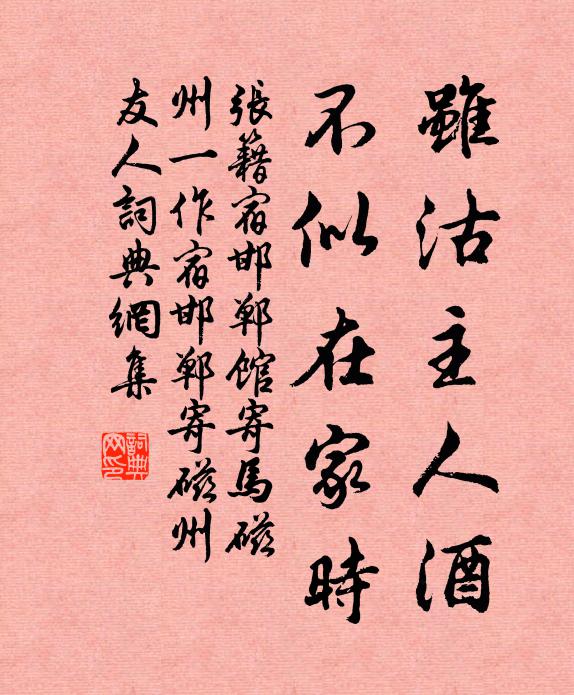 雖沽主人酒
不似在家時
張籍宿邯鄲館寄馬磁
州一作宿邯鄲寄磁州
友人詞典網集
詞典網印